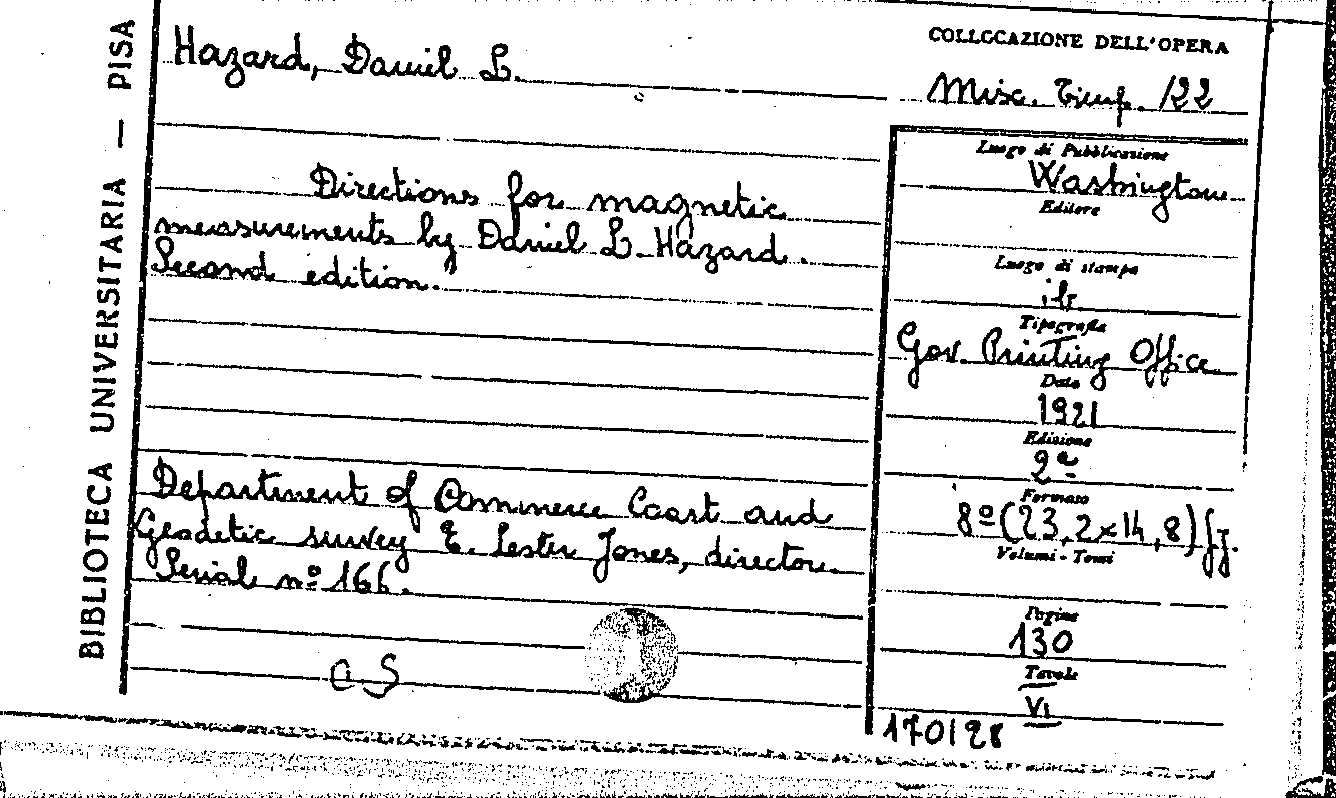 BIBLIOTECA UNIVERSITARIA — PISA
Hazard, Daniel L.
Directions for magnetic
measurements by Daniel L. Hazard.
Second edition."
Department of Commerce Coast and
Geodetic survey E. Lester Jones, director.
Serial nº 166.
COLLOCAZIONE DELL'OPERA
Misc. /22
Luogo di Pubblicazione
Washington
Editore
Luogo di stampa
ib
Tipografia
Gov. Printing Office
Data
1921
Edizione
2ª
Formato
8º (23,2x14,8) fg.
Volumi - Tomi
Pagine
130
Tavole
VI
170128